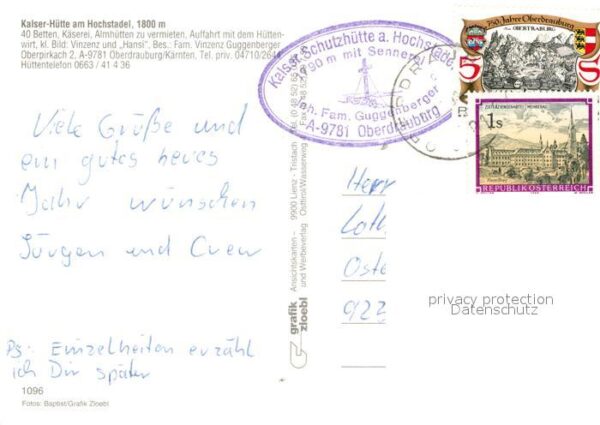 Kaiser-Hütte am Hochstadel, 1800 m
40 Betten, Käserei, Almhütten zu vermieten, Auffahrt mit dem Hütten-
wirt, kl. Bild: Vinzenz und „Hansi“, Bes.: Fam. Vinzenz Guggenberger
Oberpirkach 2, A-9781 Oberdrauburg/Kärnten, Tel. priv. 04710/264
Hüttentelefon 0663 / 41 4 36
Kaiser-Schutzhütte a. Hochstadel
1790 m mit Sennerei
Inh. Fam. Guggenberger
A-9781 Oberdrauburg
750 Jahre Oberdrauburg
5 S
1s
REPUBLIK ÖSTERREICH
Viele Grüße und
ein gutes neues
Jahr wünschen
Jürgen und Crew
Ps: Einzelheiten erzähl
ich Dir später
Herr
Oste
922
grafik
zloebl
Ansichtskarten – 9900 Lienz · Tristach
und Werbeverlag Osttirol/Wasserweg
privacy protection
Datenschutz
1096
Fotos: Baptist/Grafik Zloebl